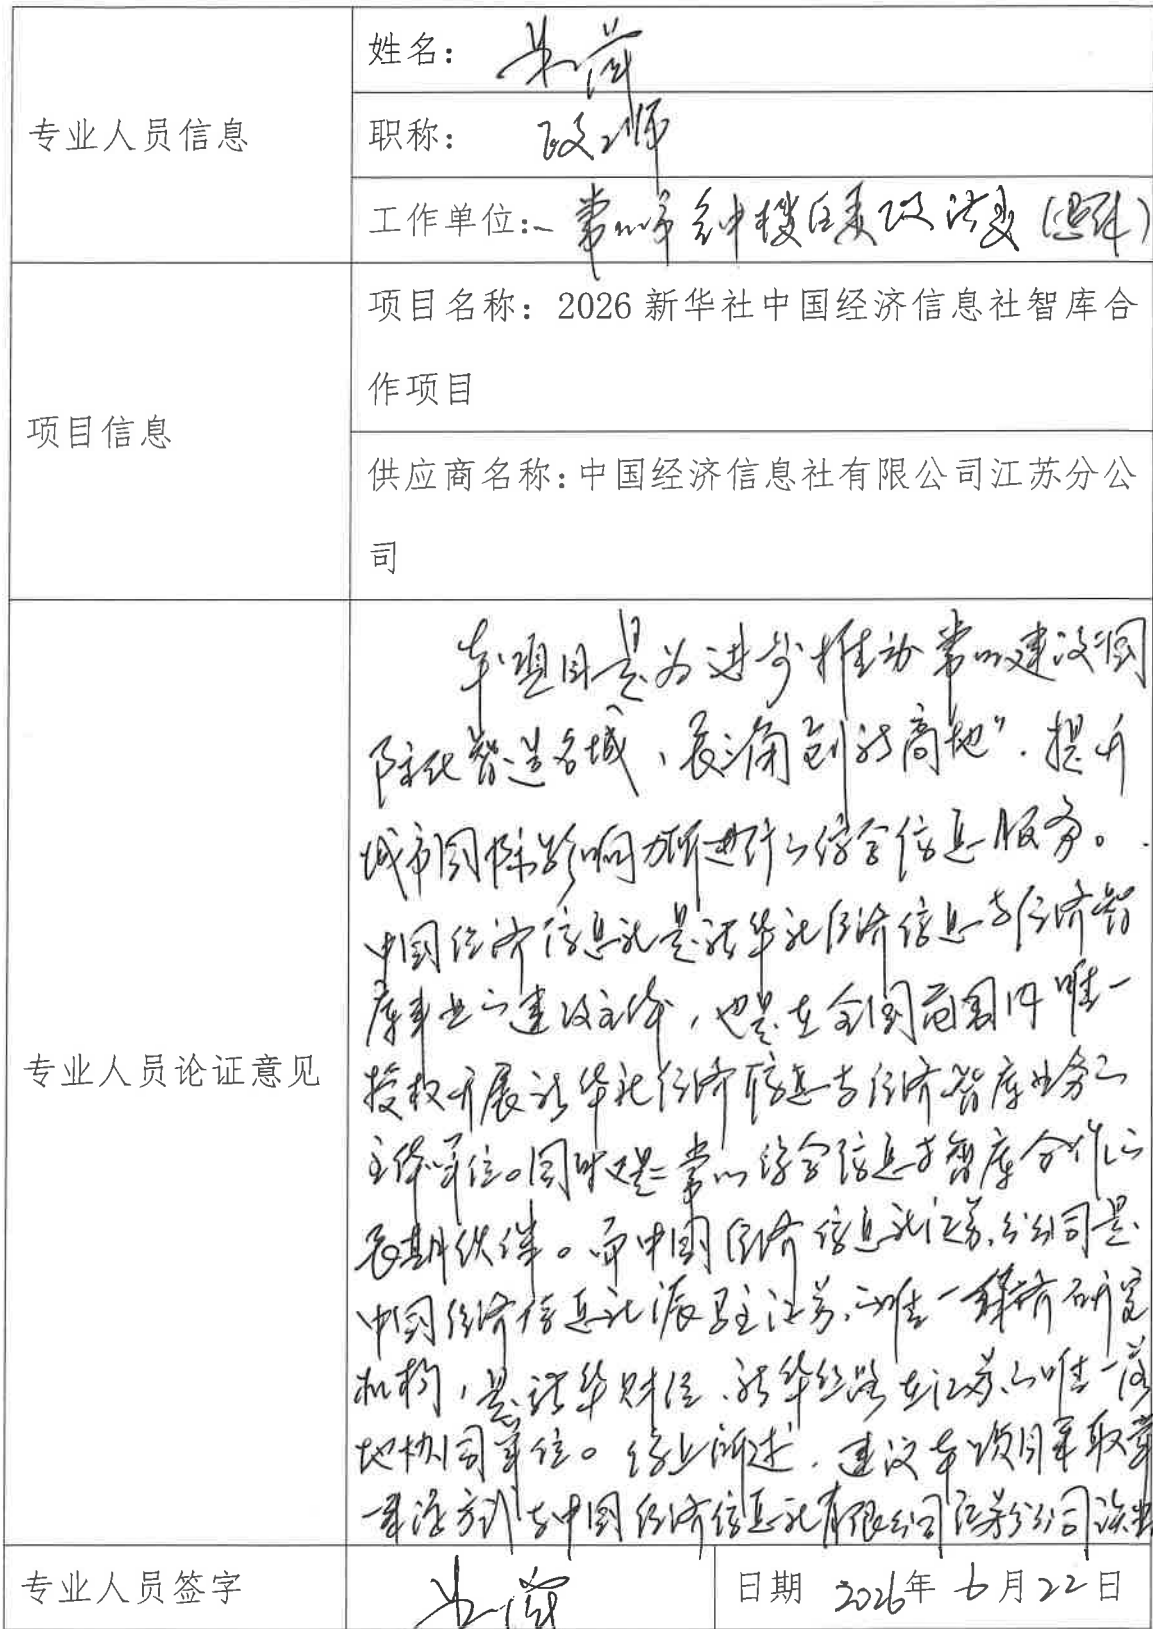 姓名：
专业人员信息
职称： 政工师
工作单位： 常州市钟楼区委政法委（退休）
项目名称：2026新华社中国经济信息社智库合
作项目
项目信息
供应商名称：中国经济信息社有限公司江苏分公
司
本项目是为进一步推动常州建设“国
际化智造名城、长三角创新高地”.提升
城市国际影响力所进行的综合信息服务。
中国经济信息社是新华社经济信息与经济智
库事业的建设主体，也是在全国范围内唯一
专业人员论证意见
授权开展新华社经济信息与经济智库业务的
主体单位。同时又是常州综合信息与智库合作的
长期伙伴。而中国经济信息社江苏分公司是
中国经济信息社派驻江苏的唯一经济研究
机构，是新华财经、新华丝路在江苏的唯一落
地协同单位。综上所述，建议本项目采取单
一来源方式与中国经济信息社有限公司江苏分公司谈判
专业人员签字
日期 2026年6月22日